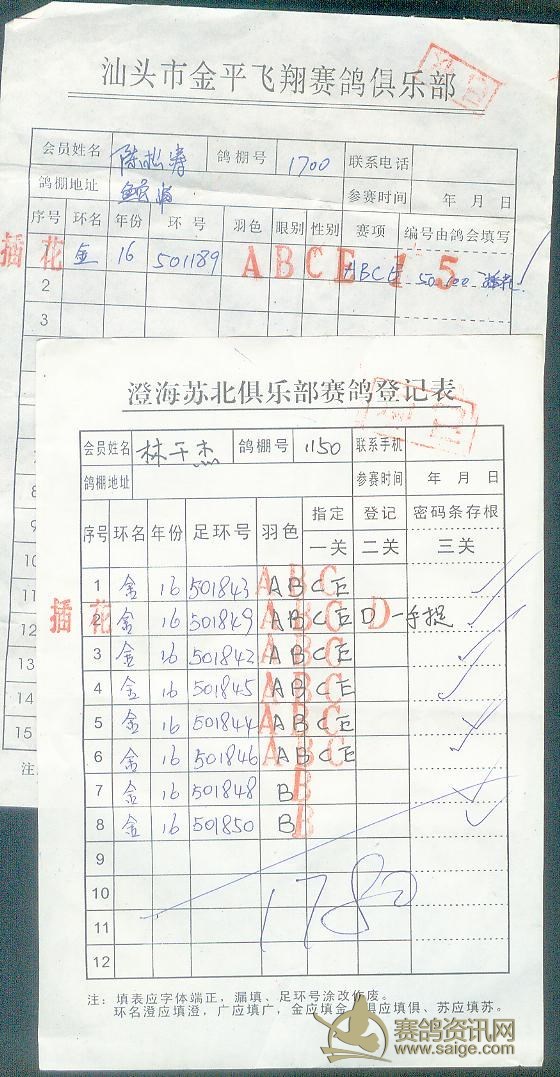 汕头市金平飞翔赛鸽俱乐部
会员姓名 陈松涛 鸽棚号 1700 联系电话
鸽棚地址 参赛时间 年 月 日
序号 环名 年份 环 号 羽色 眼别 性别 赛项 编号由鸽会填写
插花 金 16 501189 A B C E ABCE 15 50-100 插花
2
3
8
9
10
11
12
13
14
15
注:
澄海苏北俱乐部赛鸽登记表
会员姓名 林千杰 鸽棚号 1150 联系手机
鸽棚地址 参赛时间 年 月 日
序号 环名 年份 足环号 羽色 指定 登记 密码条存根
一关 二关 三关
1 金 16 501843 ABCE
插花 2 金 16 501849 ABCE D 一手捉
3 金 16 501842 ABCE
4 金 16 501845 ABCE
5 金 16 501844 ABCE
6 金 16 501846 ABCE
7 金 16 501848 B
8 金 16 501850 B
9
10
11
12
1780
注: 填表应字体端正,漏填、足环号涂改作废。
环名澄应填澄,广应填广,金应填金,俱应填俱、苏应填苏。
赛鸽资讯网
www.saige.com